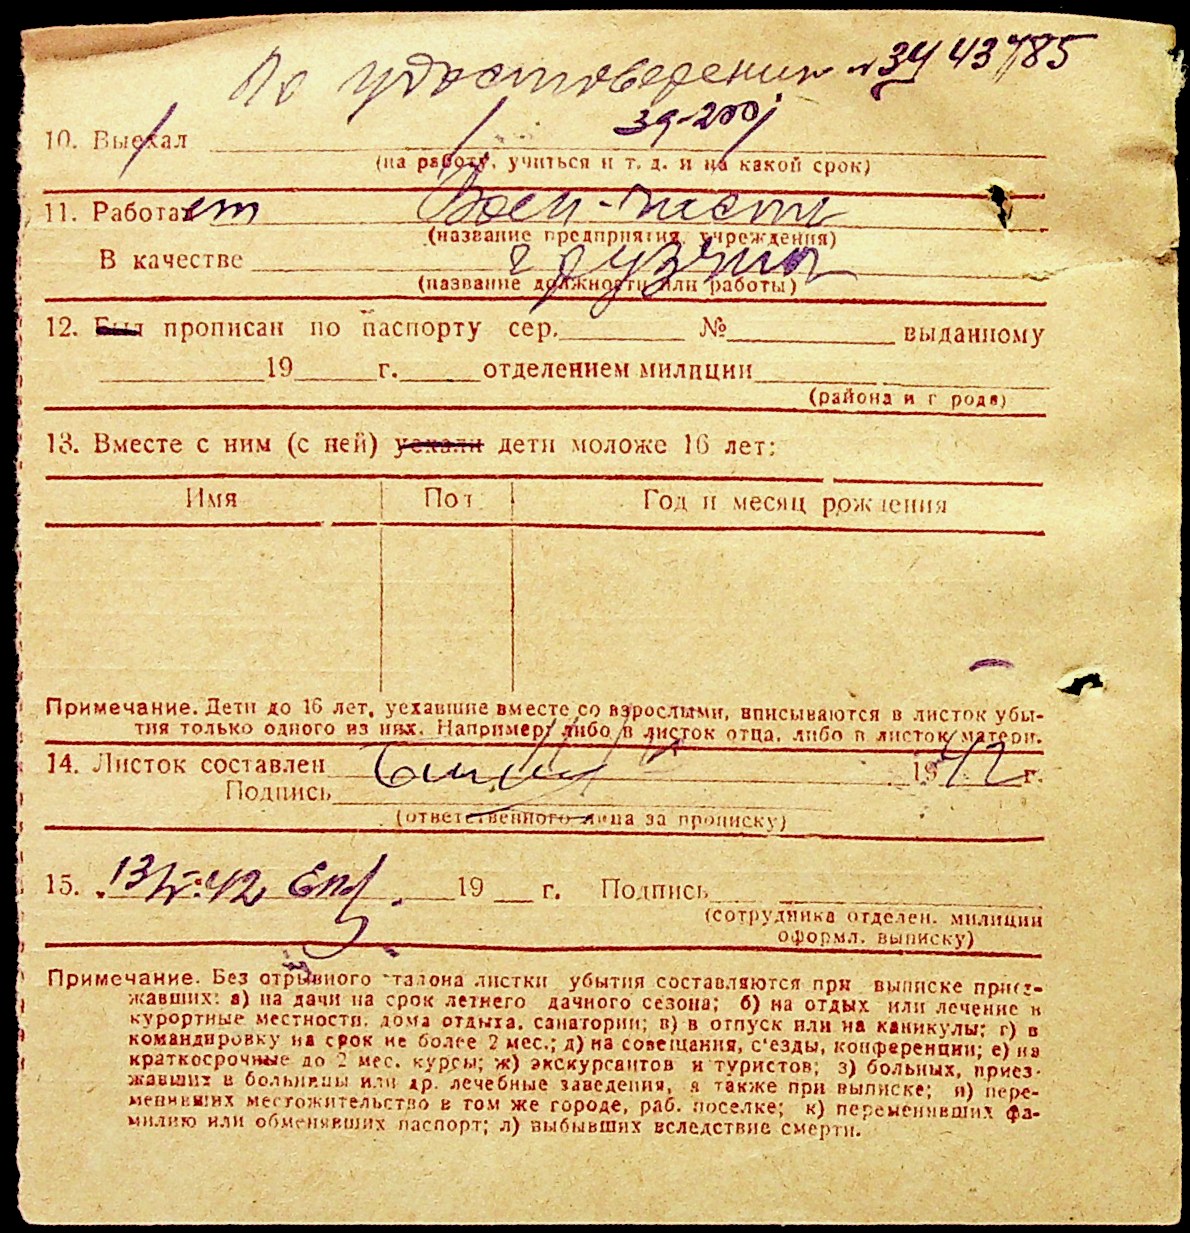 По удостоверению № 3443785
39-200
10. Выехал
(на работу, учиться и т. д. и на какой срок)
11. Работает Воен-части
(название предприятия, учреждения)
В качестве грузчик
(название должности или работы)
12. Был прописан по паспорту сер. № выданному
19 г. отделением милиции
(района и г рода)
13. Вместе с ним (с ней) уехали дети моложе 16 лет:
Имя Пол Год и месяц рождения
Примечание. Дети до 16 лет, уехавшие вместе со взрослыми, вписываются в листок убы-
тия только одного из них. Например, либо в листок отца, либо в листок матери.
14. Листок составлен 1942 г.
Подпись
(ответственного лица за прописку)
15. 19 г. Подпись
(сотрудника отделен. милиции
оформл. выписку)
Примечание. Без отрывного талона листки убытия составляются при выписке приез-
жавших: а) на дачи на срок летнего дачного сезона; б) на отдых или лечение в
курортные местности, дома отдыха, санатории; в) в отпуск или на каникулы; г) в
командировку на срок не более 2 мес.; д) на совещания, с'езды, конференции; е) на
краткосрочные до 2 мес. курсы; ж) экскурсантов и туристов; з) больных, приез-
жавших в больницы или др. лечебные заведения, а также при выписке; и) пере-
менивших местожительство в том же городе, раб. поселке; к) переменивших фа-
милию или обменявших паспорт; л) выбывших вследствие смерти.